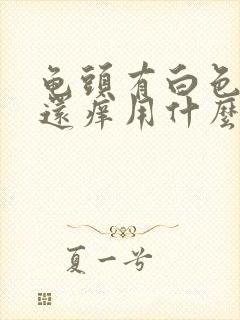 龟頭有白色
還癢用什麼
夏一号